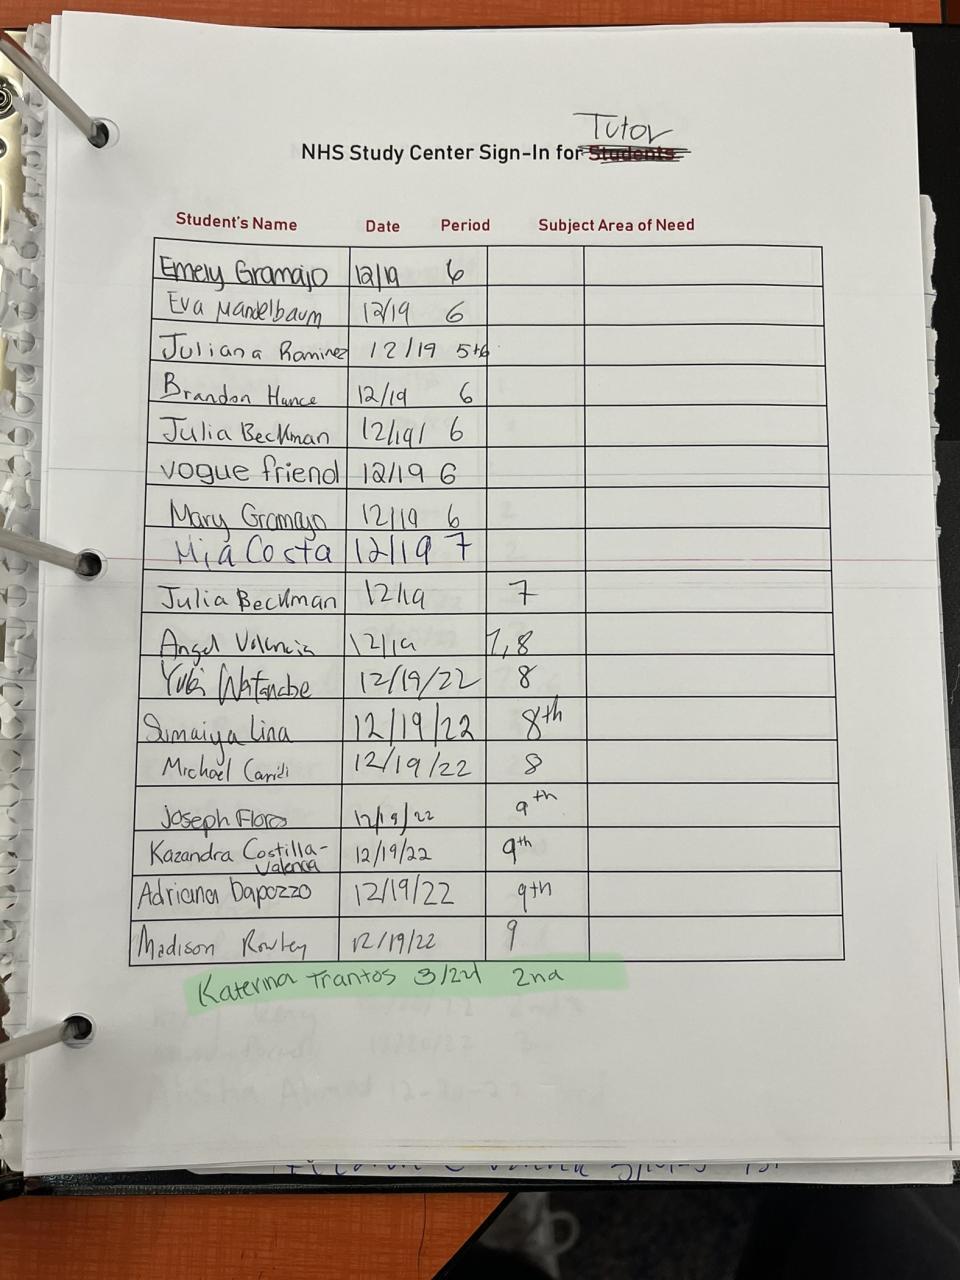 Tutor
NHS Study Center Sign-In for Students
Student's Name Date Period Subject Area of Need
Emely Gramajo 12/19 6
Eva Mandelbaum 12/19 6
Juliana Ramirez 12/19 5th
Brandon Hance 12/19 6
Julia Beckman 12/19/ 6
vogue friend 12/19 6
Mary Gramajo 12/19 6
Mia Costa 12/19 7
Julia Beckman 12/19 7
Angel Valencia 12/19 7,8
Yuki Watanabe 12/19/22 8
Sumaiya Lina 12/19/22 8th
Michael Caridi 12/19/22 8
Joseph Flores 12/19/22 9th
Kazandra Costilla-
Valencia 12/19/22 9th
Adriana Dapozzo 12/19/22 9th
Madison Rowley 12/19/22 9
Katerina Trantos 3/24 2nd